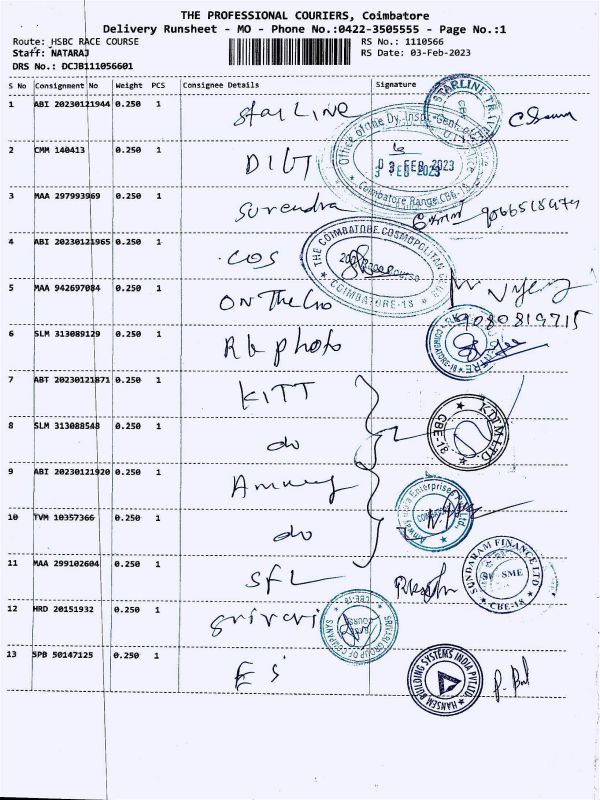 THE PROFESSIONAL COURIERS, Coimbatore
Delivery Runsheet - MO - Phone No.:0422-3505555 - Page No.:1
Route: HSBC RACE COURSE
RS No.: 1110566
Staff: NATARAJ
RS Date: 03-Feb-2023
DRS No.: DCJB111056601
S No Consignment No Weight PCS Consignee Details Signature
1 ABI 20230121944 0.250 1 Star Line
STARLINE
2 CMM 140413 0.250 1 DIG
Office of the Dy. Inspr. Genl. of
03 FEB 2023
Coimbatore Range, CBE
3 MAA 297993969 0.250 1 Surendra
4 ABI 20230121965 0.250 1 COS
THE COIMBATORE COSMOPOLITAN CLUB
COIMBATORE-18
5 MAA 942697084 0.250 1 On The Go
9080819715
6 SLM 313089129 0.250 1 RK photo
7 ABT 20230121871 0.250 1 KITT
KDTM LTD
CBE-18
8 SLM 313088548 0.250 1 do
9 ABI 20230121920 0.250 1 Amway
Enterprises Pvt. Ltd.
10 TVM 10357366 0.250 1 do
11 MAA 299102604 0.250 1 SFL
SUNDARAM FINANCE LTD
SME
CBE-18
12 HRD 20151932 0.250 1 Srivari
SRIVARI GROUP OF COMPANYS
CBE-18
13 SPB 50147125 0.250 1
HANSEM BUILDING SYSTEMS INDIA PVT.LTD.